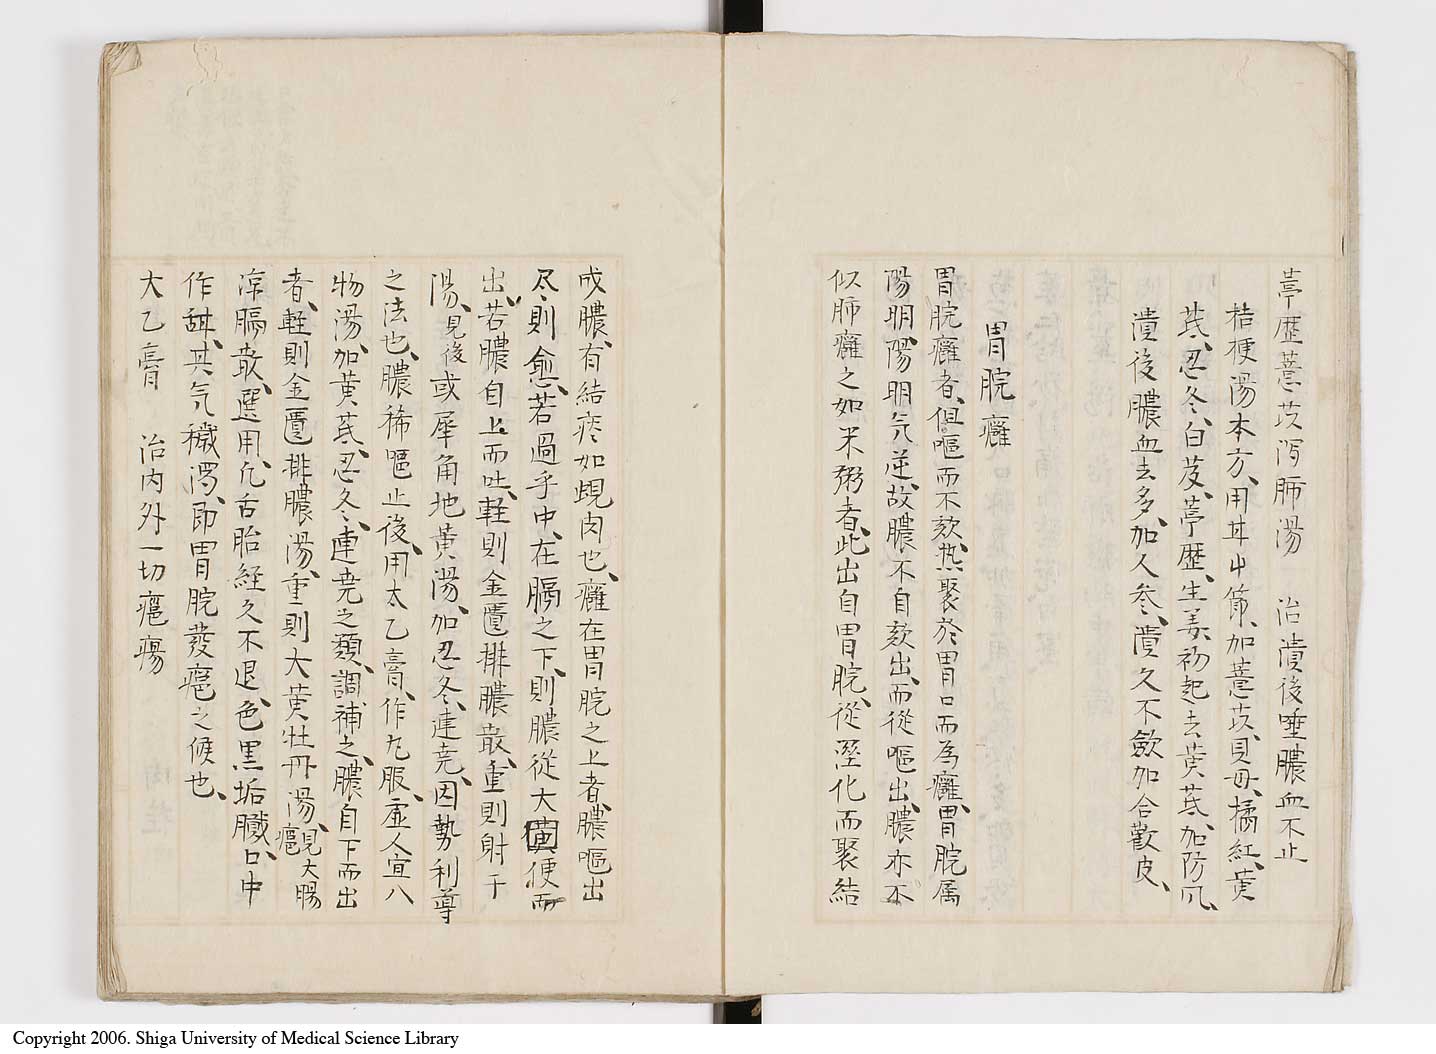 葶歴薏苡瀉肺湯　治潰後唾膿血不止
桔梗湯本方、用甘中節、加薏苡、貝母、橘紅、黄
芪、忍冬、白芨、葶歴、生姜、初起去黄芪、加防風、
潰後膿血去多、加人参、潰久不歛加合歡皮、
胃脘癰
胃脘癰者、但嘔而不欬、热聚於胃口而為癰、胃脘属
陽明、陽明気逆、故膿不自欬出、而從嘔出、膿亦不
似肺癰之如米粥者、此出自胃脘、從溼化而聚結
成膿、有結痰如蜆肉也、癰在胃脘之上者、膿嘔出
尽、則愈、若過乎中、在膈之下、則膿從大便而
出、若膿自上而吐、軽則金匱排膿散、重則射干
湯、見後或犀角地黄湯、加忍冬、連尭、因勢利導
之法也、膿稀嘔止後、用太乙膏、作丸服、虚人宜八
物湯、加黄芪、忍冬、連尭之類、調補之、膿自下而出
者、軽則金匱排膿湯、重則大黄牡丹湯、見大腸癰
涼膈散、選用、凢舌胎経久不退、色黒垢膱、口中
作甜、其気穢濁、即胃脘發癰之候也、
大乙膏　治内外一切癰瘍
Copyright 2006. Shiga University of Medical Science Library